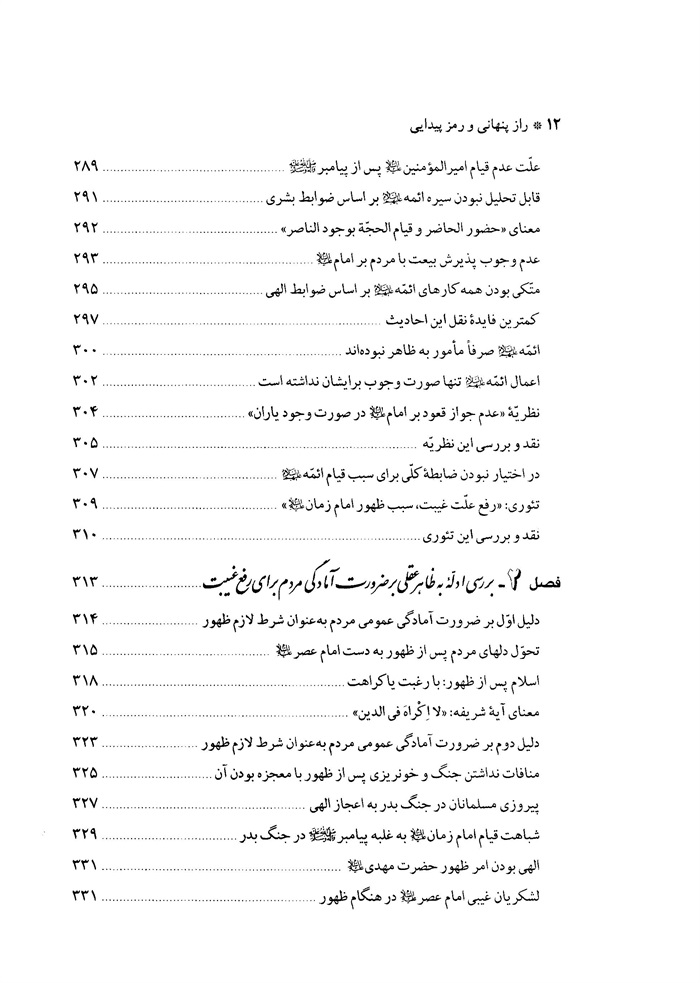 ۱۲ * راز پنهانی و رمز پیدایی
علّت عدم قیام امیرالمؤمنین علیه السلام پس از پیامبر صلی الله علیه و آله ........ ۲۸۹
قابل تحلیل نبودن سیره ائمه علیهم السلام بر اساس ضوابط بشری ........ ۲۹۱
معنای «حضور الحاضر و قیام الحجّة بوجود الناصر» ........ ۲۹۲
عدم وجوب پذیرش بیعت با مردم بر امام علیه السلام ........ ۲۹۳
متّکی بودن همه کارهای ائمّه علیهم السلام بر اساس ضوابط الهی ........ ۲۹۵
کمترین فایدهٔ نقل این احادیث ........ ۲۹۷
ائمّه علیهم السلام صرفاً مأمور به ظاهر نبوده‌اند ........ ۳۰۰
اعمال ائمّه علیهم السلام تنها صورت وجوب برایشان نداشته است ........ ۳۰۲
نظریّهٔ «عدم جواز قعود بر امام علیه السلام در صورت وجود یاران» ........ ۳۰۴
نقد و بررسی این نظریّه ........ ۳۰۵
در اختیار نبودن ضابطهٔ کلّی برای سبب قیام ائمّه علیهم السلام ........ ۳۰۷
تئوری: «رفع علّت غیبت، سبب ظهور امام زمان علیه السلام» ........ ۳۰۹
نقد و بررسی این تئوری ........ ۳۱۰
فصل ۲ - بررسی ادلّهٔ به ظاهر عقلی بر ضرورت آمادگی مردم برای رفع غیبت ........ ۳۱۳
دلیل اوّل بر ضرورت آمادگی عمومی مردم به‌عنوان شرط لازم ظهور ........ ۳۱۴
تحوّل دلهای مردم پس از ظهور به دست امام عصر علیه السلام ........ ۳۱۵
اسلام پس از ظهور: با رغبت یا کراهت ........ ۳۱۸
معنای آیهٔ شریفه: «لا اِکْراهَ فی الدین» ........ ۳۲۰
دلیل دوم بر ضرورت آمادگی عمومی مردم به‌عنوان شرط لازم ظهور ........ ۳۲۳
منافات نداشتن جنگ و خونریزی پس از ظهور با معجزه بودن آن ........ ۳۲۵
پیروزی مسلمانان در جنگ بدر به اعجاز الهی ........ ۳۲۷
شباهت قیام امام زمان علیه السلام به غلبه پیامبر صلی الله علیه و آله در جنگ بدر ........ ۳۲۹
الهی بودن امر ظهور حضرت مهدی علیه السلام ........ ۳۳۱
لشکریان غیبی امام عصر علیه السلام در هنگام ظهور ........ ۳۳۱